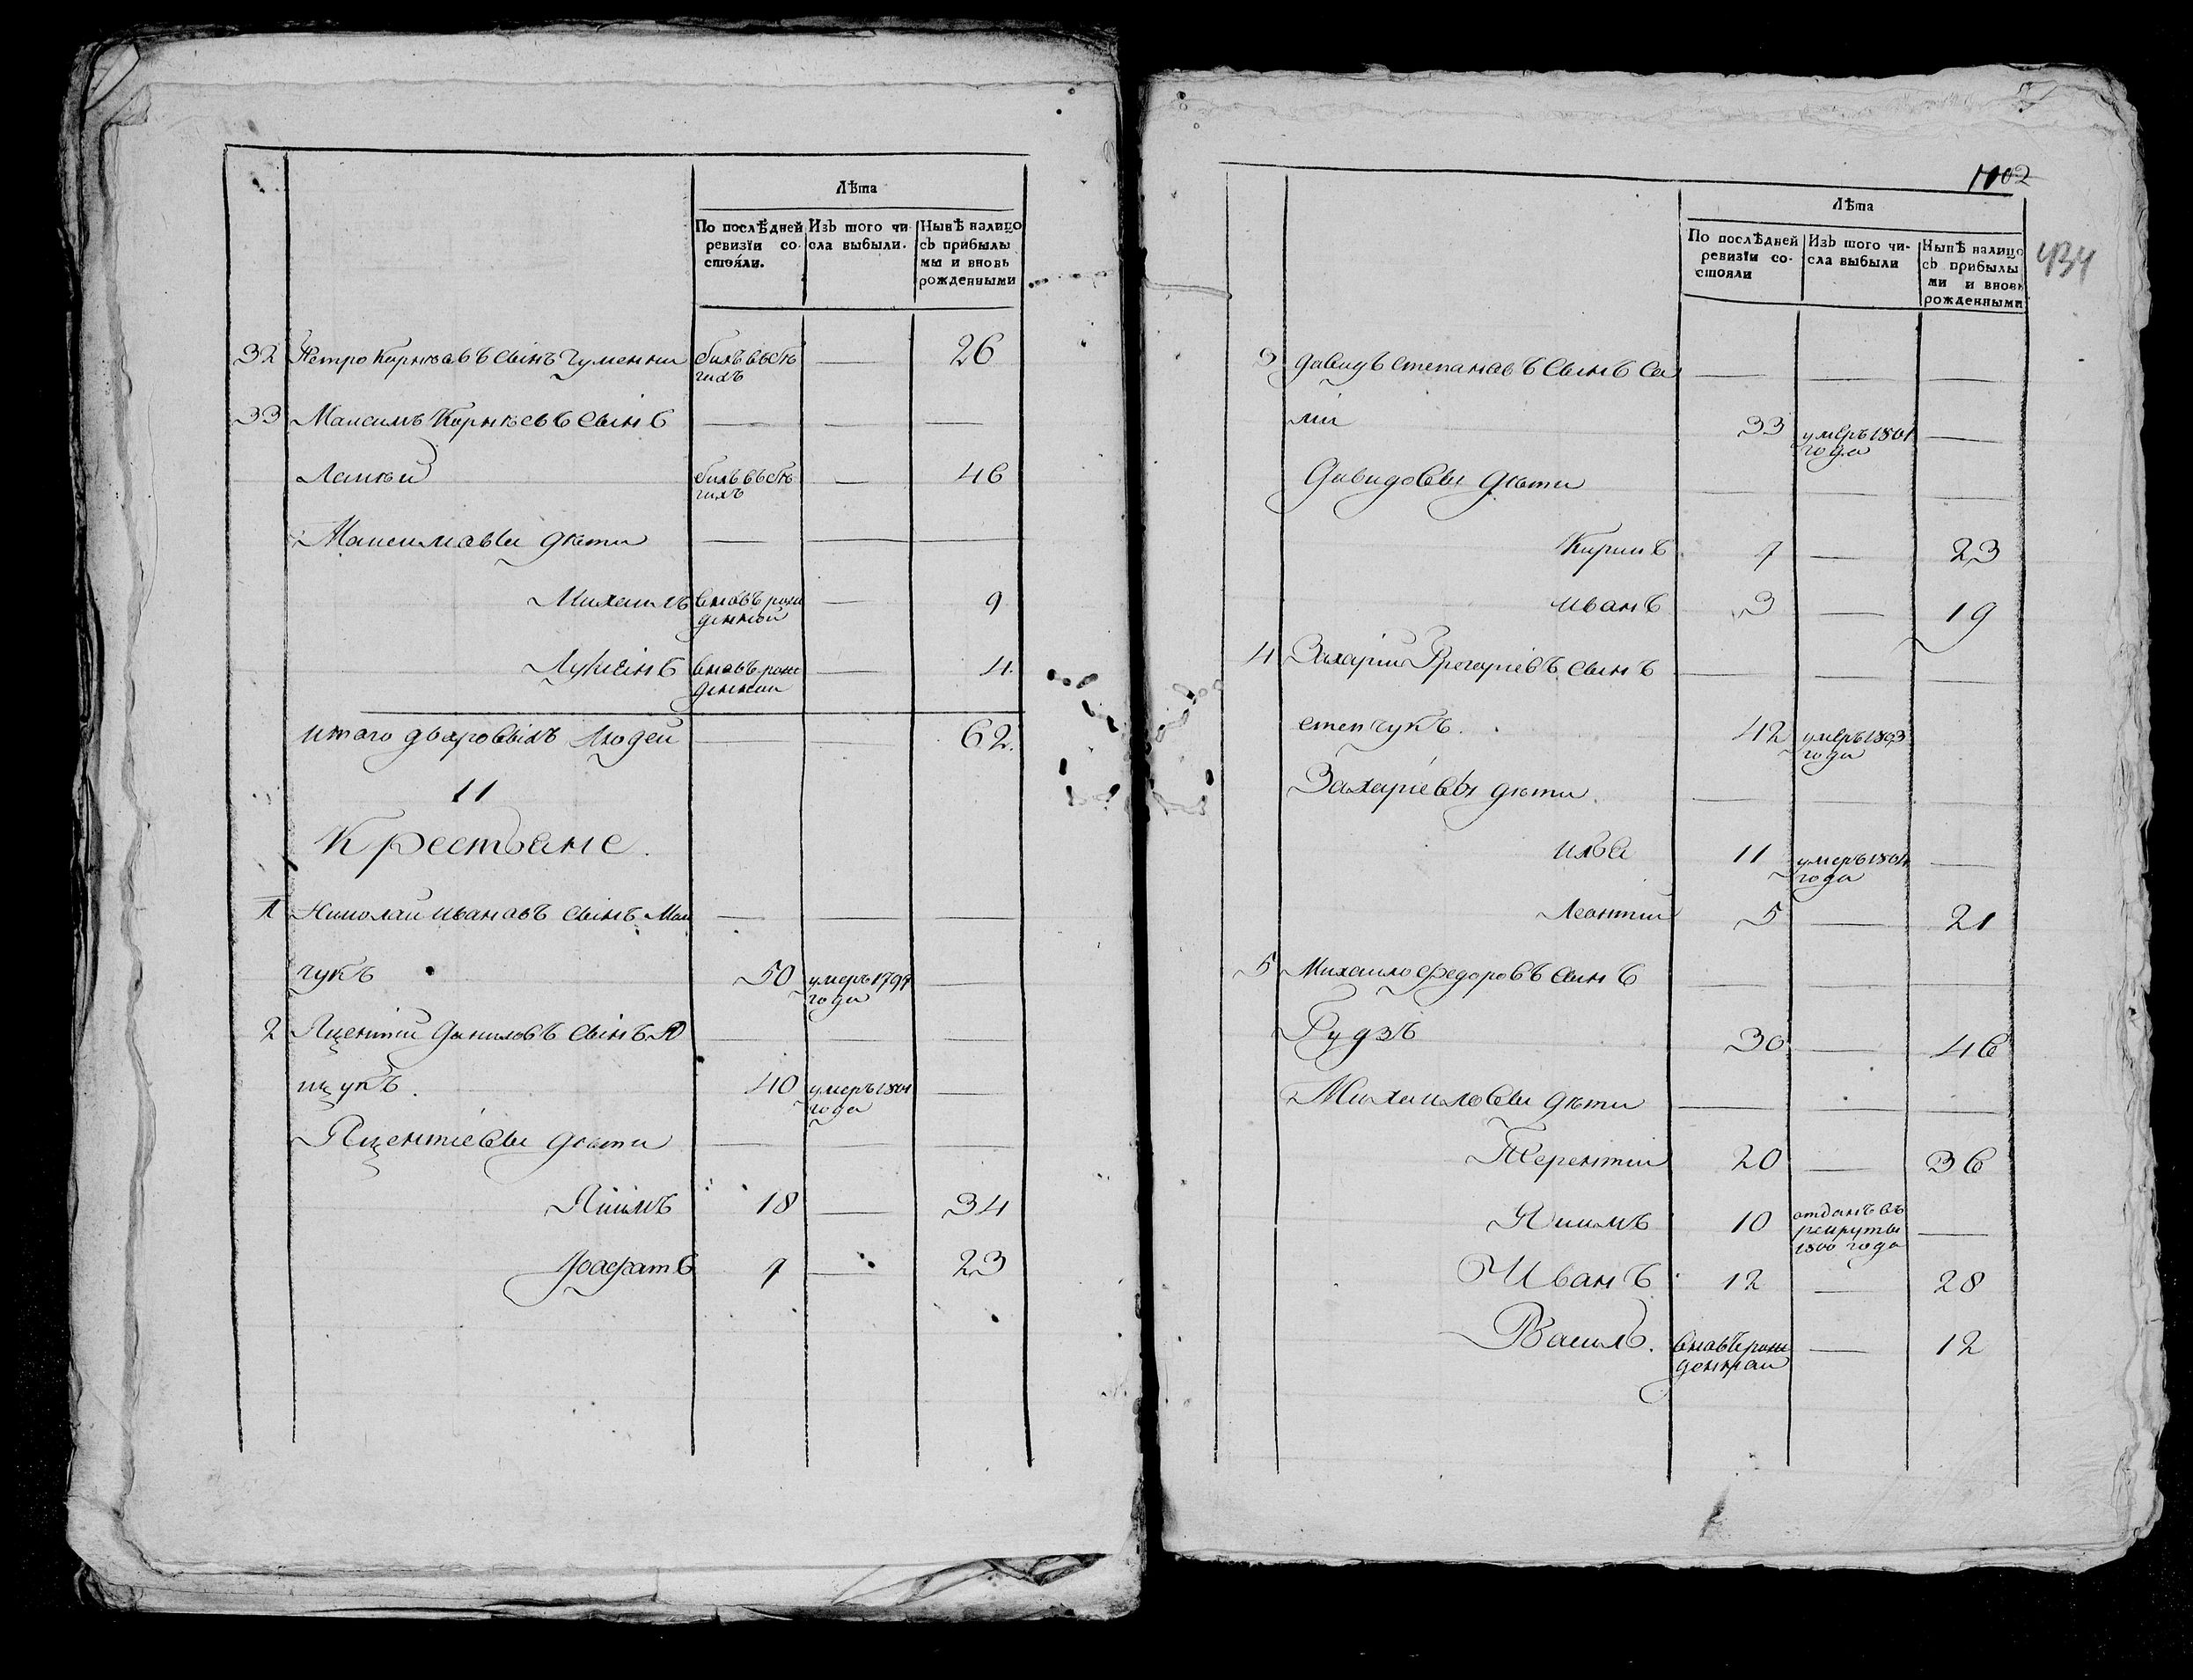 Лѣта
По послѣдней ревизїи со-стояли.
Изъ того чи-сла выбыли.
Нынѣ налицо съ прибылы мы и вновь рожденными
32 Петро Корнѣевъ Сынъ Гуменни былъ въ бѣ гахъ — 26
33 Максимъ Корнѣевъ Сынъ — — —
былъ въ бѣ гахъ — 46
Максимовы дѣти — — —
Михаилъ вновь рож денной — 9
вновь рож денной — 4.
итого дворовыхъ людей — — 62.
11
Крестьяне.
1 Николай Ивановъ Сынъ Мал — — —
чукъ 50 умеръ 1797 года —
2 Яцентій Даниловъ Сынъ Я — — —
щукъ. 40 умеръ 1801 года —
Яцентіевы дѣти — — —
Якимъ 18 — 34
Іоасфатъ 7 — 23
1102
Лѣта
434
По послѣдней ревизїи со-стояли
Изъ того чи-сла выбыли
Нынѣ налицо съ прибылы ми и вновь рожденными
3 Давидъ Степановъ Сынъ Са — — —
мій 33 умеръ 1801 года —
Давидовы Дѣти — — —
Кирилъ 7 — 23
иванъ 3 — 19
4 Захарій Григоріевъ Сынъ — — —
степчукъ. 42 умеръ 1803 года
Захаріевы дѣти. — — —
илья 11 умеръ 1804 года —
Леонтій 5 — 21
5 Михайло Федоровъ Сынъ — — —
Гудзъ 30 — 46
Михайловы дѣти — — —
Терентій 20 — 36
Якимъ 10 отданъ въ рекруты 1800 года —
Иванъ 12 — 28
Василь. вновь рож денной — 12